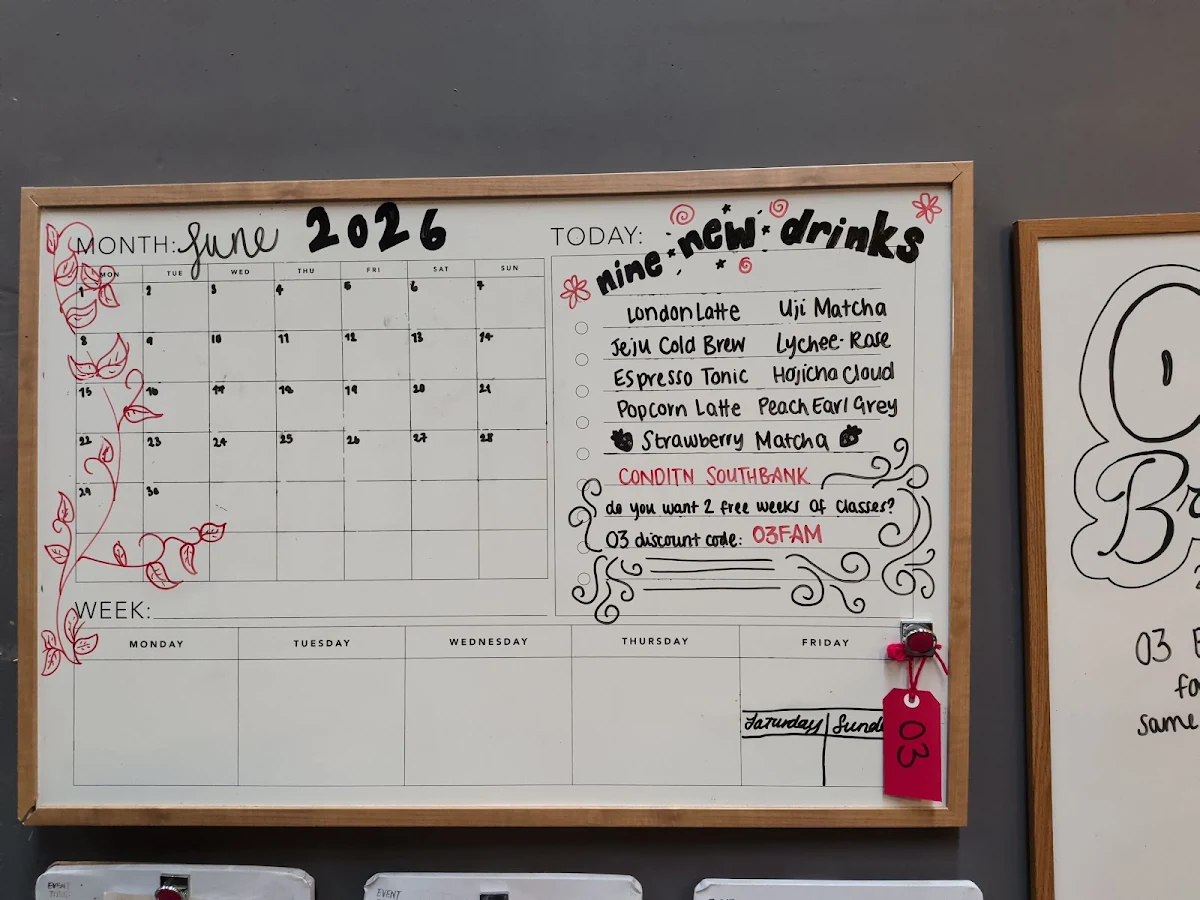 MONTH: June 2026
MON TUE WED THU FRI SAT SUN
1 2 3 4 5 6 7
8 9 10 11 12 13 14
15 16 17 18 19 20 21
22 23 24 25 26 27 28
29 30
TODAY:
nine new drinks
London Latte Uji Matcha
Jeju Cold Brew Lychee Rose
Espresso Tonic Hojicha Cloud
Popcorn Latte Peach Earl Grey
Strawberry Matcha
CONDITN SOUTHBANK
do you want 2 free weeks of classes?
03 discount code: 03FAM
WEEK:
MONDAY TUESDAY WEDNESDAY THURSDAY FRIDAY
Saturday
03
03
same
EVENT
EVENT